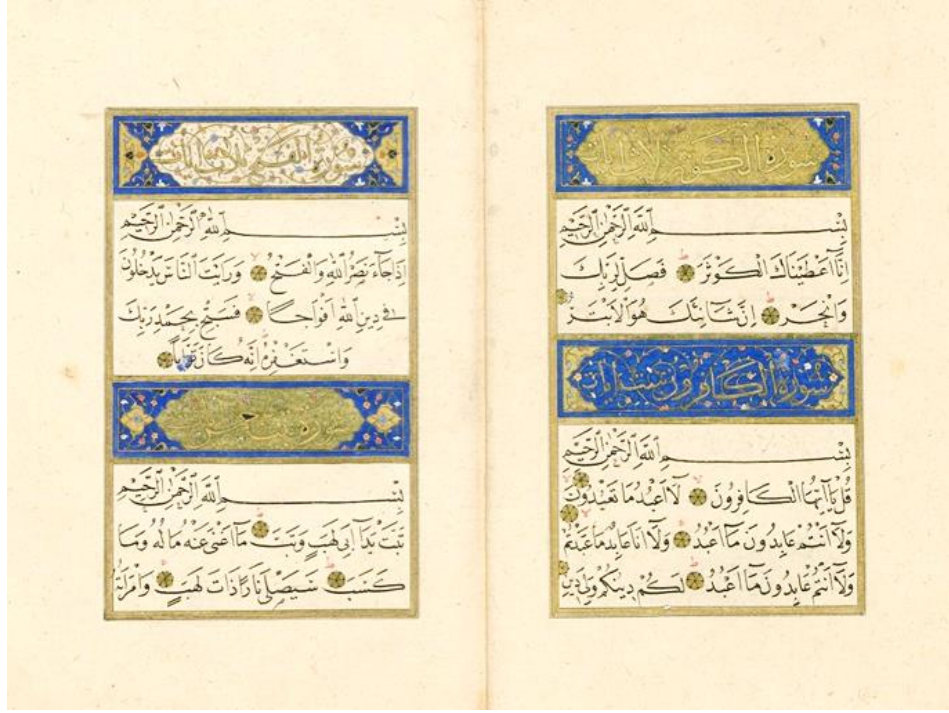 سورة الكوثر ثلاث آيات
بسم الله الرحمن الرحيم
اِنَّا اَعْطَيْنَاكَ الْكَوْثَرَ فَصَلِّ لِرَبِّكَ
وَانْحَرْ اِنَّ شَانِئَكَ هُوَ الْاَبْتَرُ
سورة الكافرون ست آيات
بسم الله الرحمن الرحيم
قُلْ يَا اَيُّهَا الْكَافِرُونَ لَا اَعْبُدُ مَا تَعْبُدُونَ
وَلَا اَنْتُمْ عَابِدُونَ مَا اَعْبُدُ وَلَا اَنَا عَابِدٌ مَا عَبَدْتُمْ
وَلَا اَنْتُمْ عَابِدُونَ مَا اَعْبُدُ لَكُمْ دِينُكُمْ وَلِيَ دِينِ
سورة الفتح ثلاث آيات
بسم الله الرحمن الرحيم
اِذَا جَاءَ نَصْرُ اللهِ وَالْفَتْحُ وَرَاَيْتَ النَّاسَ يَدْخُلُونَ
فِي دِينِ اللهِ اَفْوَاجًا فَسَبِّحْ بِحَمْدِ رَبِّكَ
وَاسْتَغْفِرْهُ اِنَّهُ كَانَ تَوَّابًا
سورة تبت
بسم الله الرحمن الرحيم
تَبَّتْ يَدَا اَبِي لَهَبٍ وَتَبَّ مَا اَغْنَى عَنْهُ مَالُهُ وَمَا
كَسَبَ سَيَصْلَى نَارًا ذَاتَ لَهَبٍ وَامْرَاَتُهُ